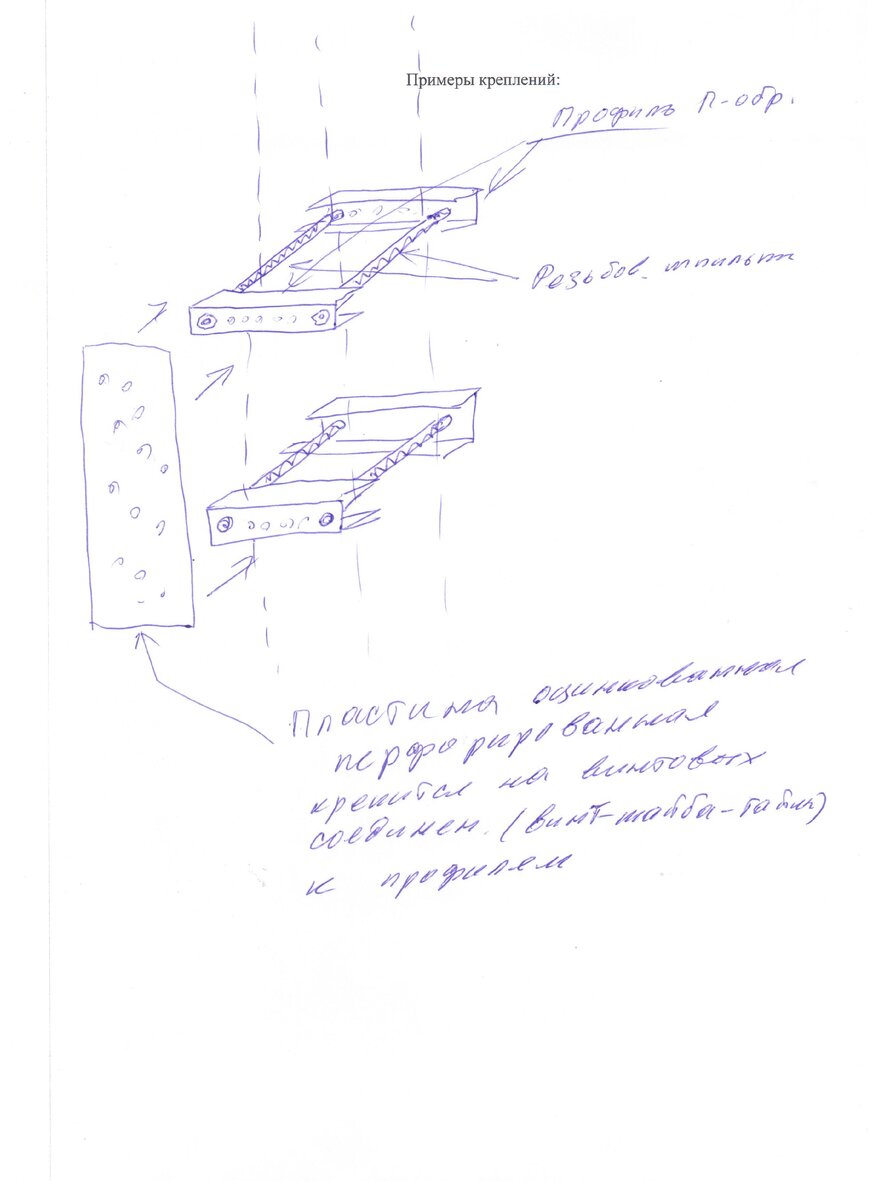 Примеры креплений:
Профиль П-обр.
Резьбов. шпильки
Пластина оцинкованная
перфорированная
крепится на винтовых
соединен. (винт-шайба-гайка)
к профилям